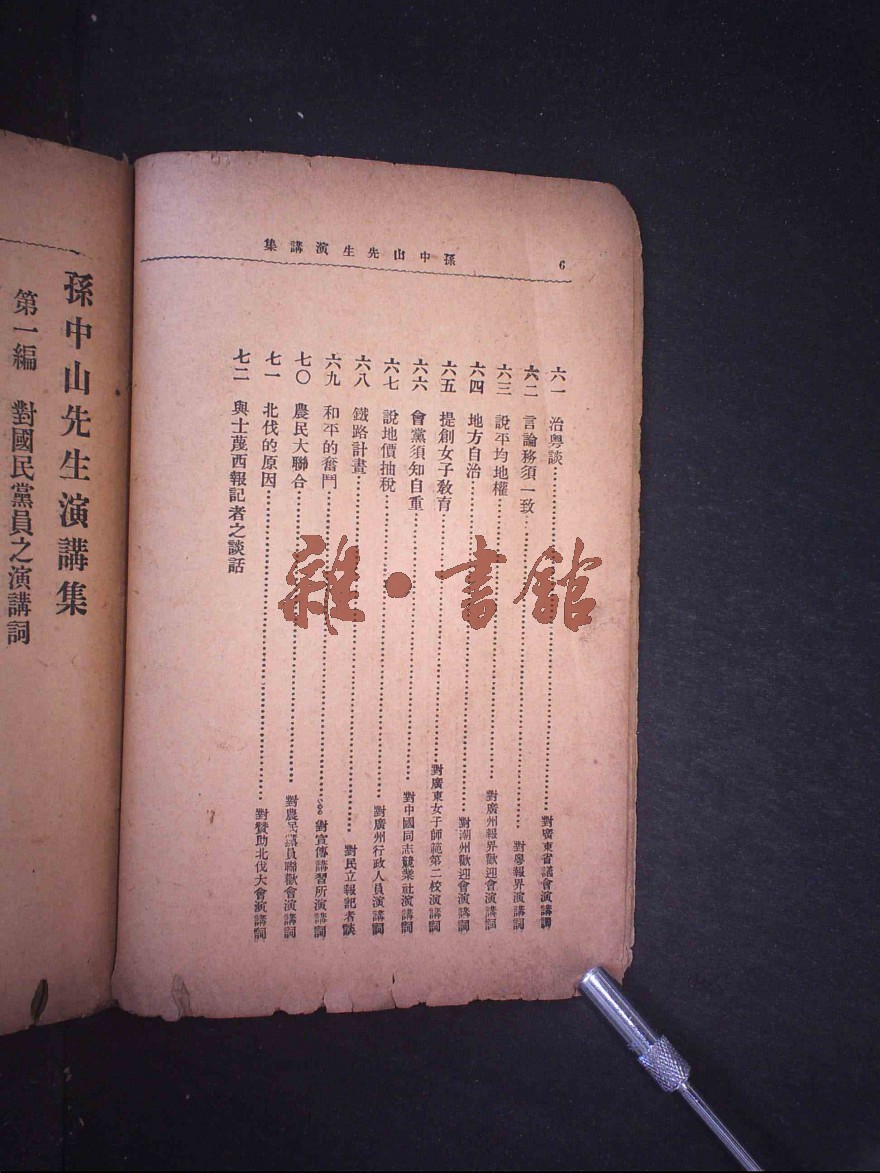 孫中山先生演講集
6
六一 治粵談……對廣東省議會演講詞
六二 言論務須一致……對粵報界演講詞
六三 說平均地權……對廣州報界歡迎會演講詞
六四 地方自治……對潮州歡迎會演講詞
六五 提創女子教育……對廣東女子師範第二校演講詞
六六 會黨須知自重……對中國同志競業社演講詞
六七 說地價抽稅……對廣州行政人員演講詞
六八 鐵路計畫……對民立報記者談
六九 和平的奮鬥……對宣傳講習所演講詞
七〇 農民大聯合……對農民黨員聯歡會演講詞
七一 北伐的原因……對贊助北伐大會演講詞
七二 與士蔑西報記者之談話
孫中山先生演講集
第一編 對國民黨員之演講詞
雜·書館